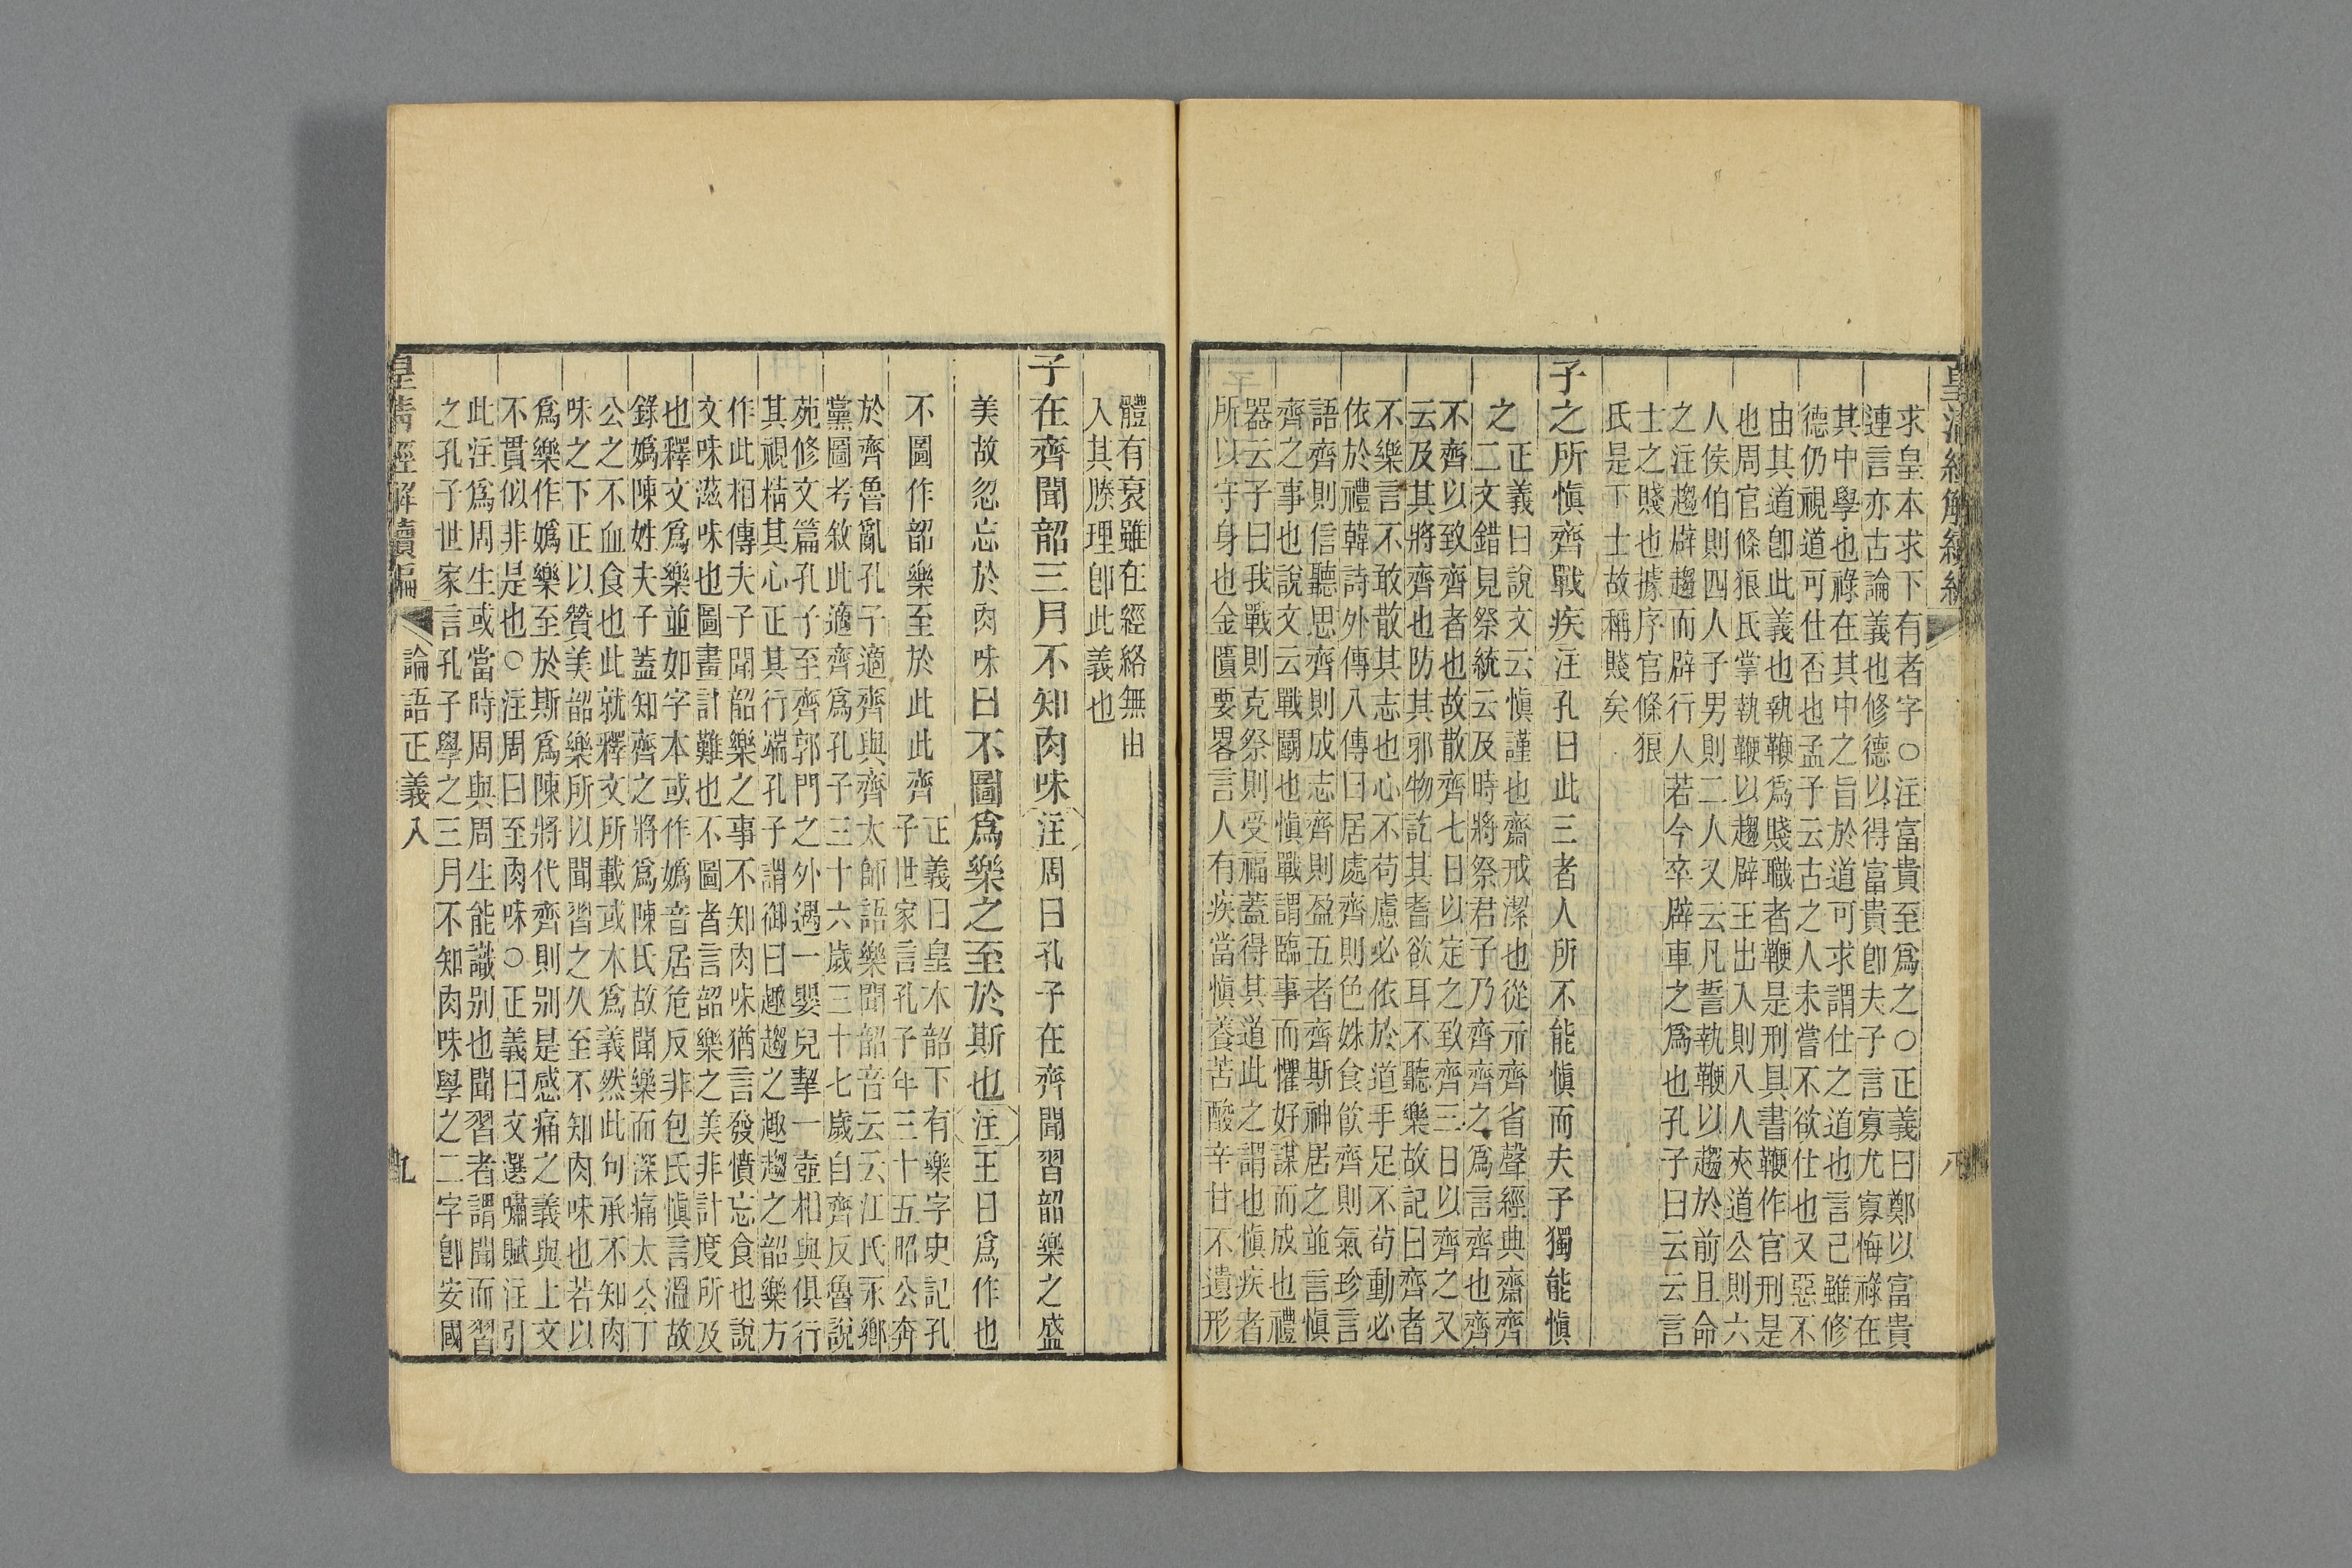 求皇本求下有者字○注富貴至爲之○正義曰鄭以富貴
連言亦古論義也修德以得富貴卽夫子言寡尤寡悔祿在
其中學也祿在其中之旨於道可求謂仕之道也言己雖修
德仍視道可仕否也孟子云古之人未嘗不欲仕也又惡不
由其道卽此義也執鞭爲賤職者鞭是刑具書鞭作官刑是
也周官條狼氏掌執鞭以趨辟王出入則八人夾道公則六
人侯伯則四人子男則二人又云凡誓執鞭以趨於前且命
之注趨辟趨而辟行人若今卒辟車之爲也孔子曰云云言
士之賤也據序官條狼
氏是下士故稱賤矣
子之所愼齊戰疾注孔曰此三者人所不能愼而夫子獨能愼
之
正義曰說文云愼謹也齋戒潔也從示齊省聲經典齋齊
二文錯見祭統云及時將祭君子乃齊齊之爲言齊也齊
不齊以致齊者也故散齊七日以定之致齊三日以齊之又
云及其將齊也防其邪物訖其耆欲耳不聽樂故記曰齊者
不樂言不敢散其志也心不苟慮必依於道手足不苟動必
依於禮韓詩外傳八傳曰居處齊則色姝食飮齊則氣珍言
語齊則信聽思齊則成志齊則盈五者齊斯神居之並言愼
齊之事也說文云戰鬬也愼戰謂臨事而懼好謀而成也禮
器云子曰我戰則克祭則受福蓋得其道此之謂也愼疾者
所以守身也金匱要畧言人有疾當愼養苦酸辛甘不遺形
體有衰雖在經絡無由
入其腠理卽此義也
子在齊聞韶三月不知肉味注周曰孔子在齊聞習韶樂之盛
美故忽忘於肉味曰不圖爲樂之至於斯也注王曰爲作也
不圖作韶樂至於此此齊
正義曰皇本韶下有樂字史記孔
子世家言孔子年三十五昭公奔
於齊魯亂孔子適齊與齊太師語樂聞韶音云云江氏永鄉
黨圖考敘此適齊爲孔子三十六歲三十七歲自齊反魯說
苑修文篇孔子至齊郭門之外遇一嬰兒挈一壺相與俱行
其視精其心正其行端孔子謂御曰趣趨之趣趨之韶樂方
作此相傳夫子聞韶樂之事不知肉味猶言發憤忘食也說
文味滋味也圖畫計難也不圖者言韶樂之美非計度所及
也釋文爲樂並如字本或作嬀音居危反非包氏愼言溫故
錄嬀陳姓夫子蓋知齊之將爲陳氏故聞樂而深痛太公丁
公之不血食也此就釋文所載或本爲義然此句承不知肉
味之下正以贊美韶樂所以聞習之久至不知肉味也若以
爲樂作嬀樂至於斯爲陳將代齊則别是感痛之義與上文
不貫似非是也○注周曰至肉味○正義曰文選嘯賦注引
此注爲周生或當時周與周生能識别也聞習者謂聞而習
之孔子世家言孔子學之三月不知肉味學之二字卽安國
皇清經解續編 論語正義八 九